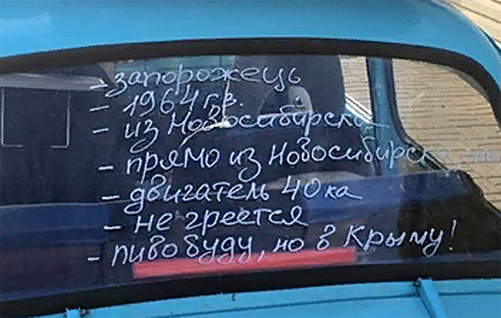 - запорожець
- 1964 гв.
- из Новосибирска
- прямо из Новосибирска
- двигатель 40ка
- не греется
- пиво буду, но в Крыму!